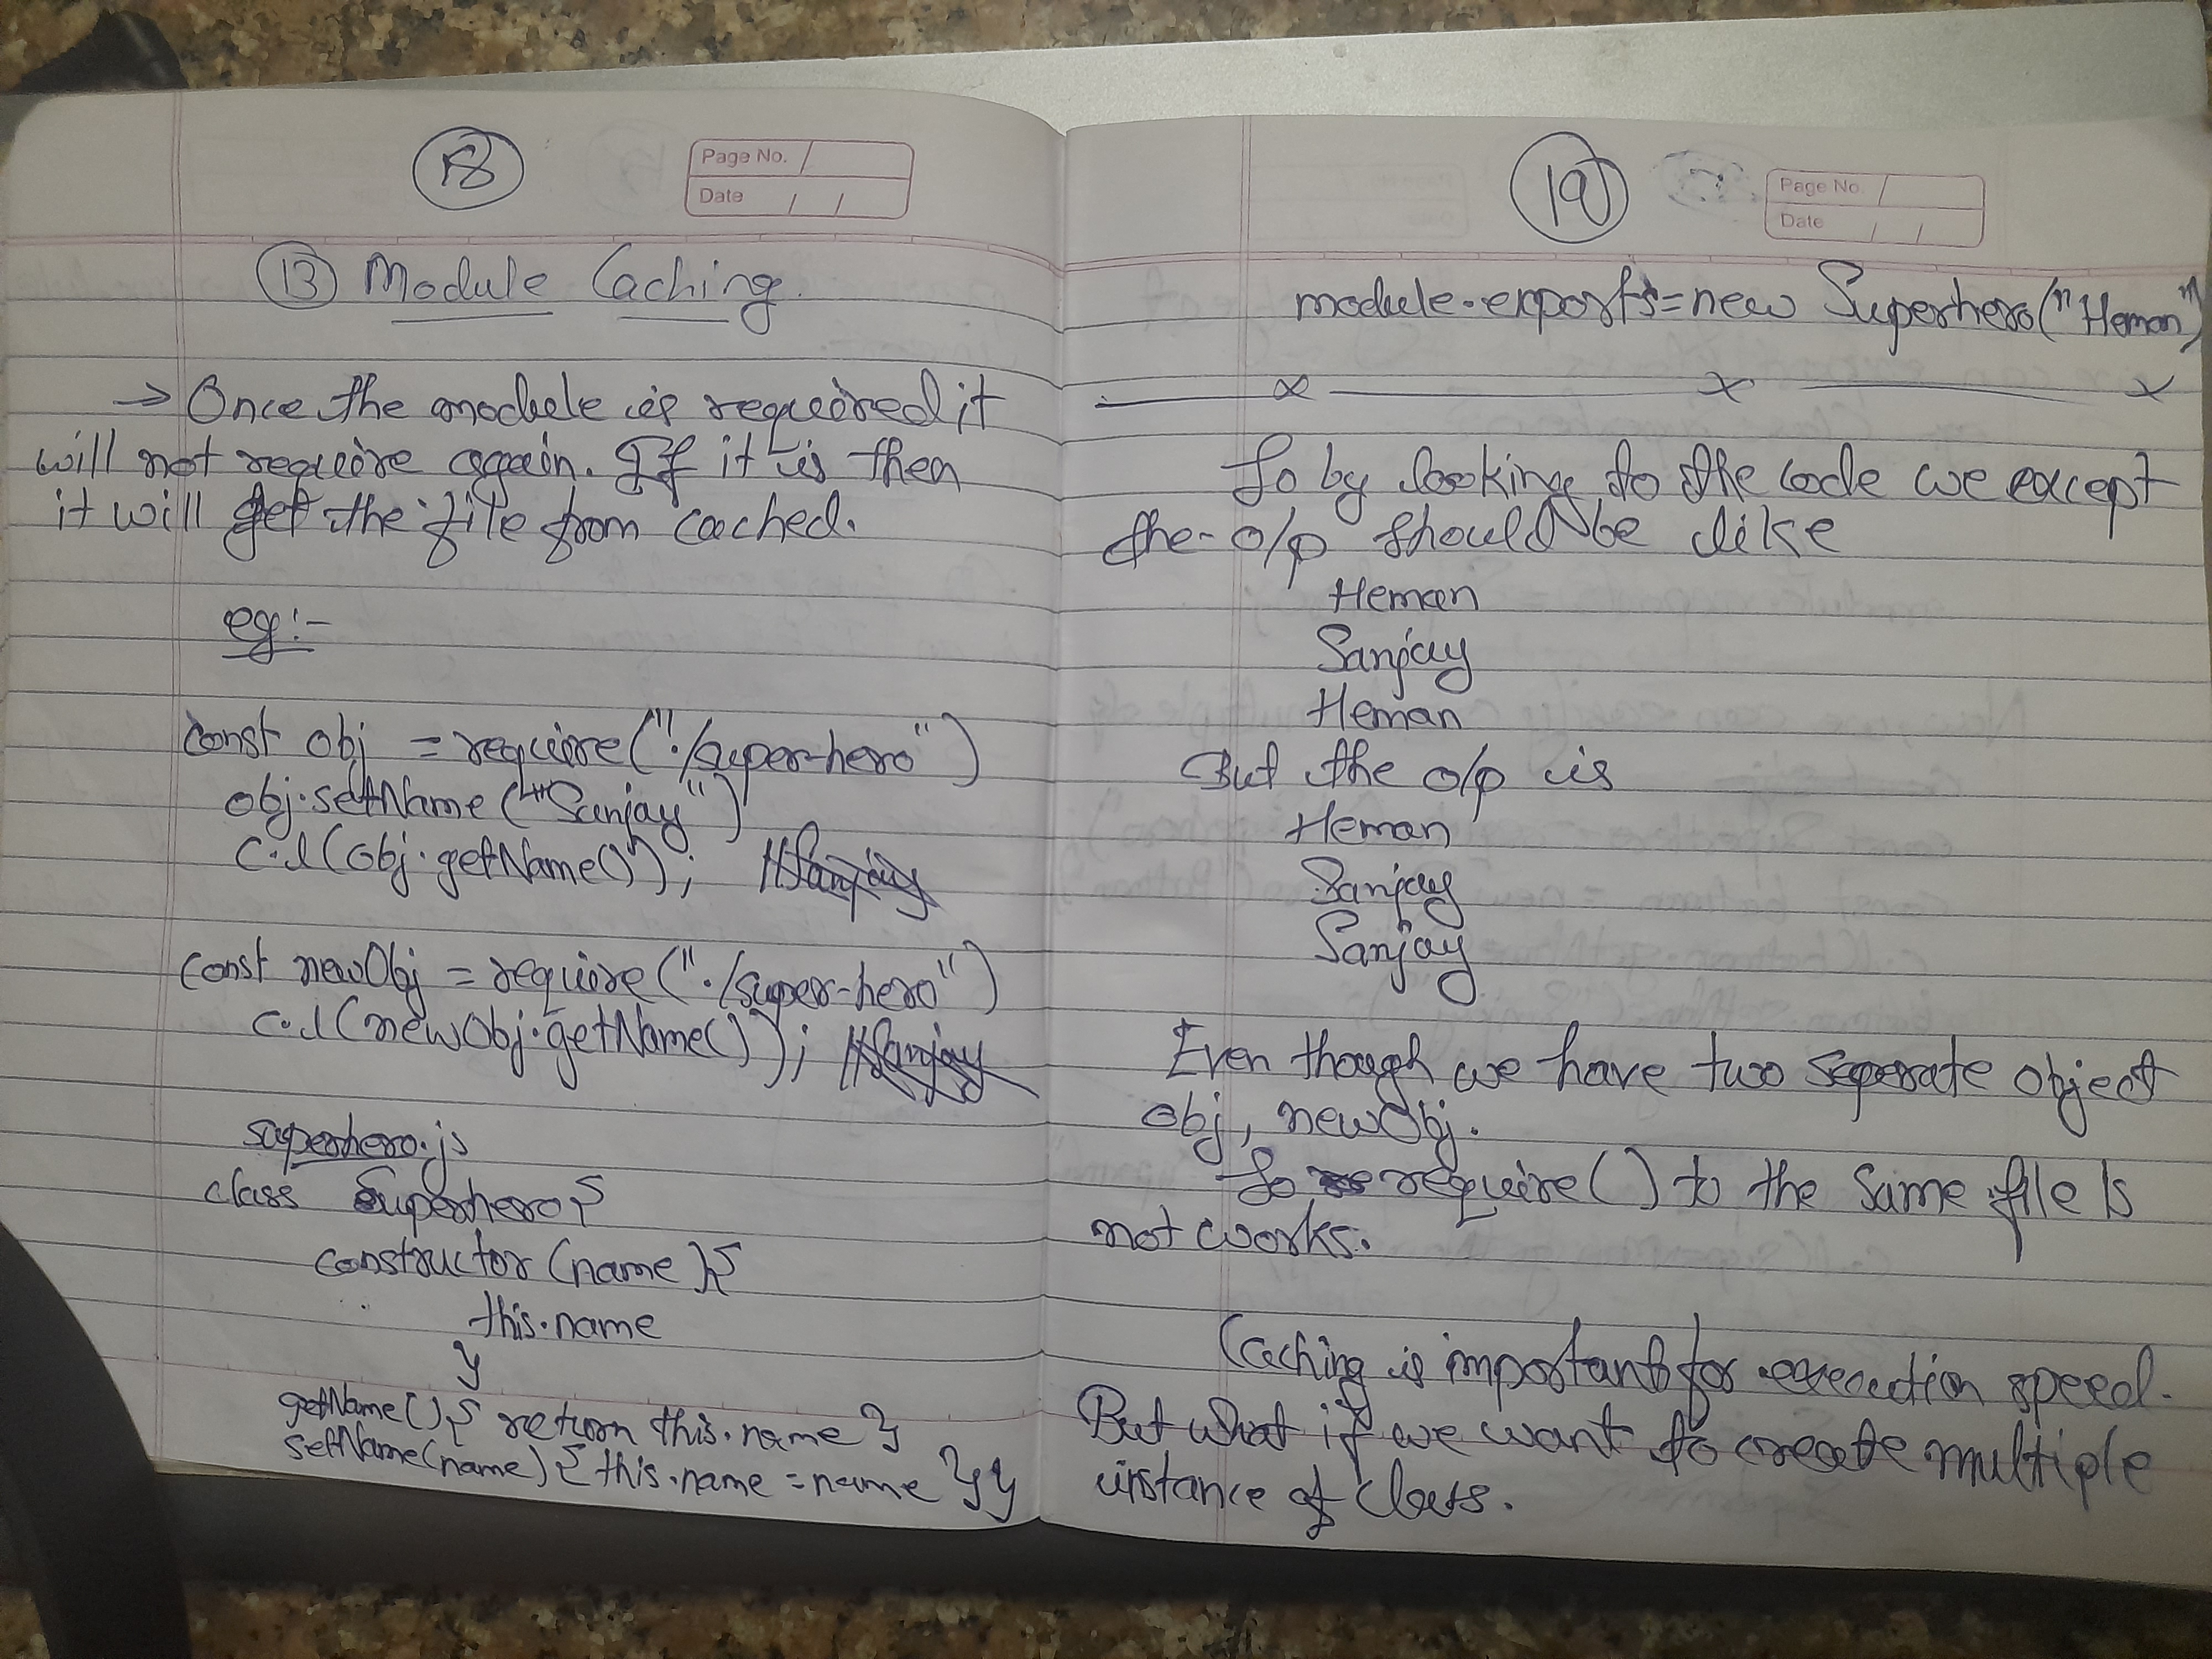 18
Page No.
Date / /
13 Module Caching.
→ Once the module is required it
will not require again. If it is then
it will get the file from cached.
eg:-
const obj = require("./super-hero")
obj.setName("Sanjay")
c.l(obj.getName()); //Sanjay
const newObj = require("./super-hero")
c.l(newObj.getName()); //Sanjay
superhero.js
class Superhero{
constructor(name){
this.name
}
getName(){ return this.name }
setName(name){ this.name = name }}
19
Page No.
Date / /
module.exports=new Superhero("Heman")
x x x
So by looking to the code we except
the o/p should be like
Heman
Sanjay
Heman
But the o/p is
Heman
Sanjay
Sanjay
Even though we have two seperate object
obj, newObj.
So require() to the same file is
not works.
Caching is important for execution speed.
But what if we want to create multiple
instance of class.